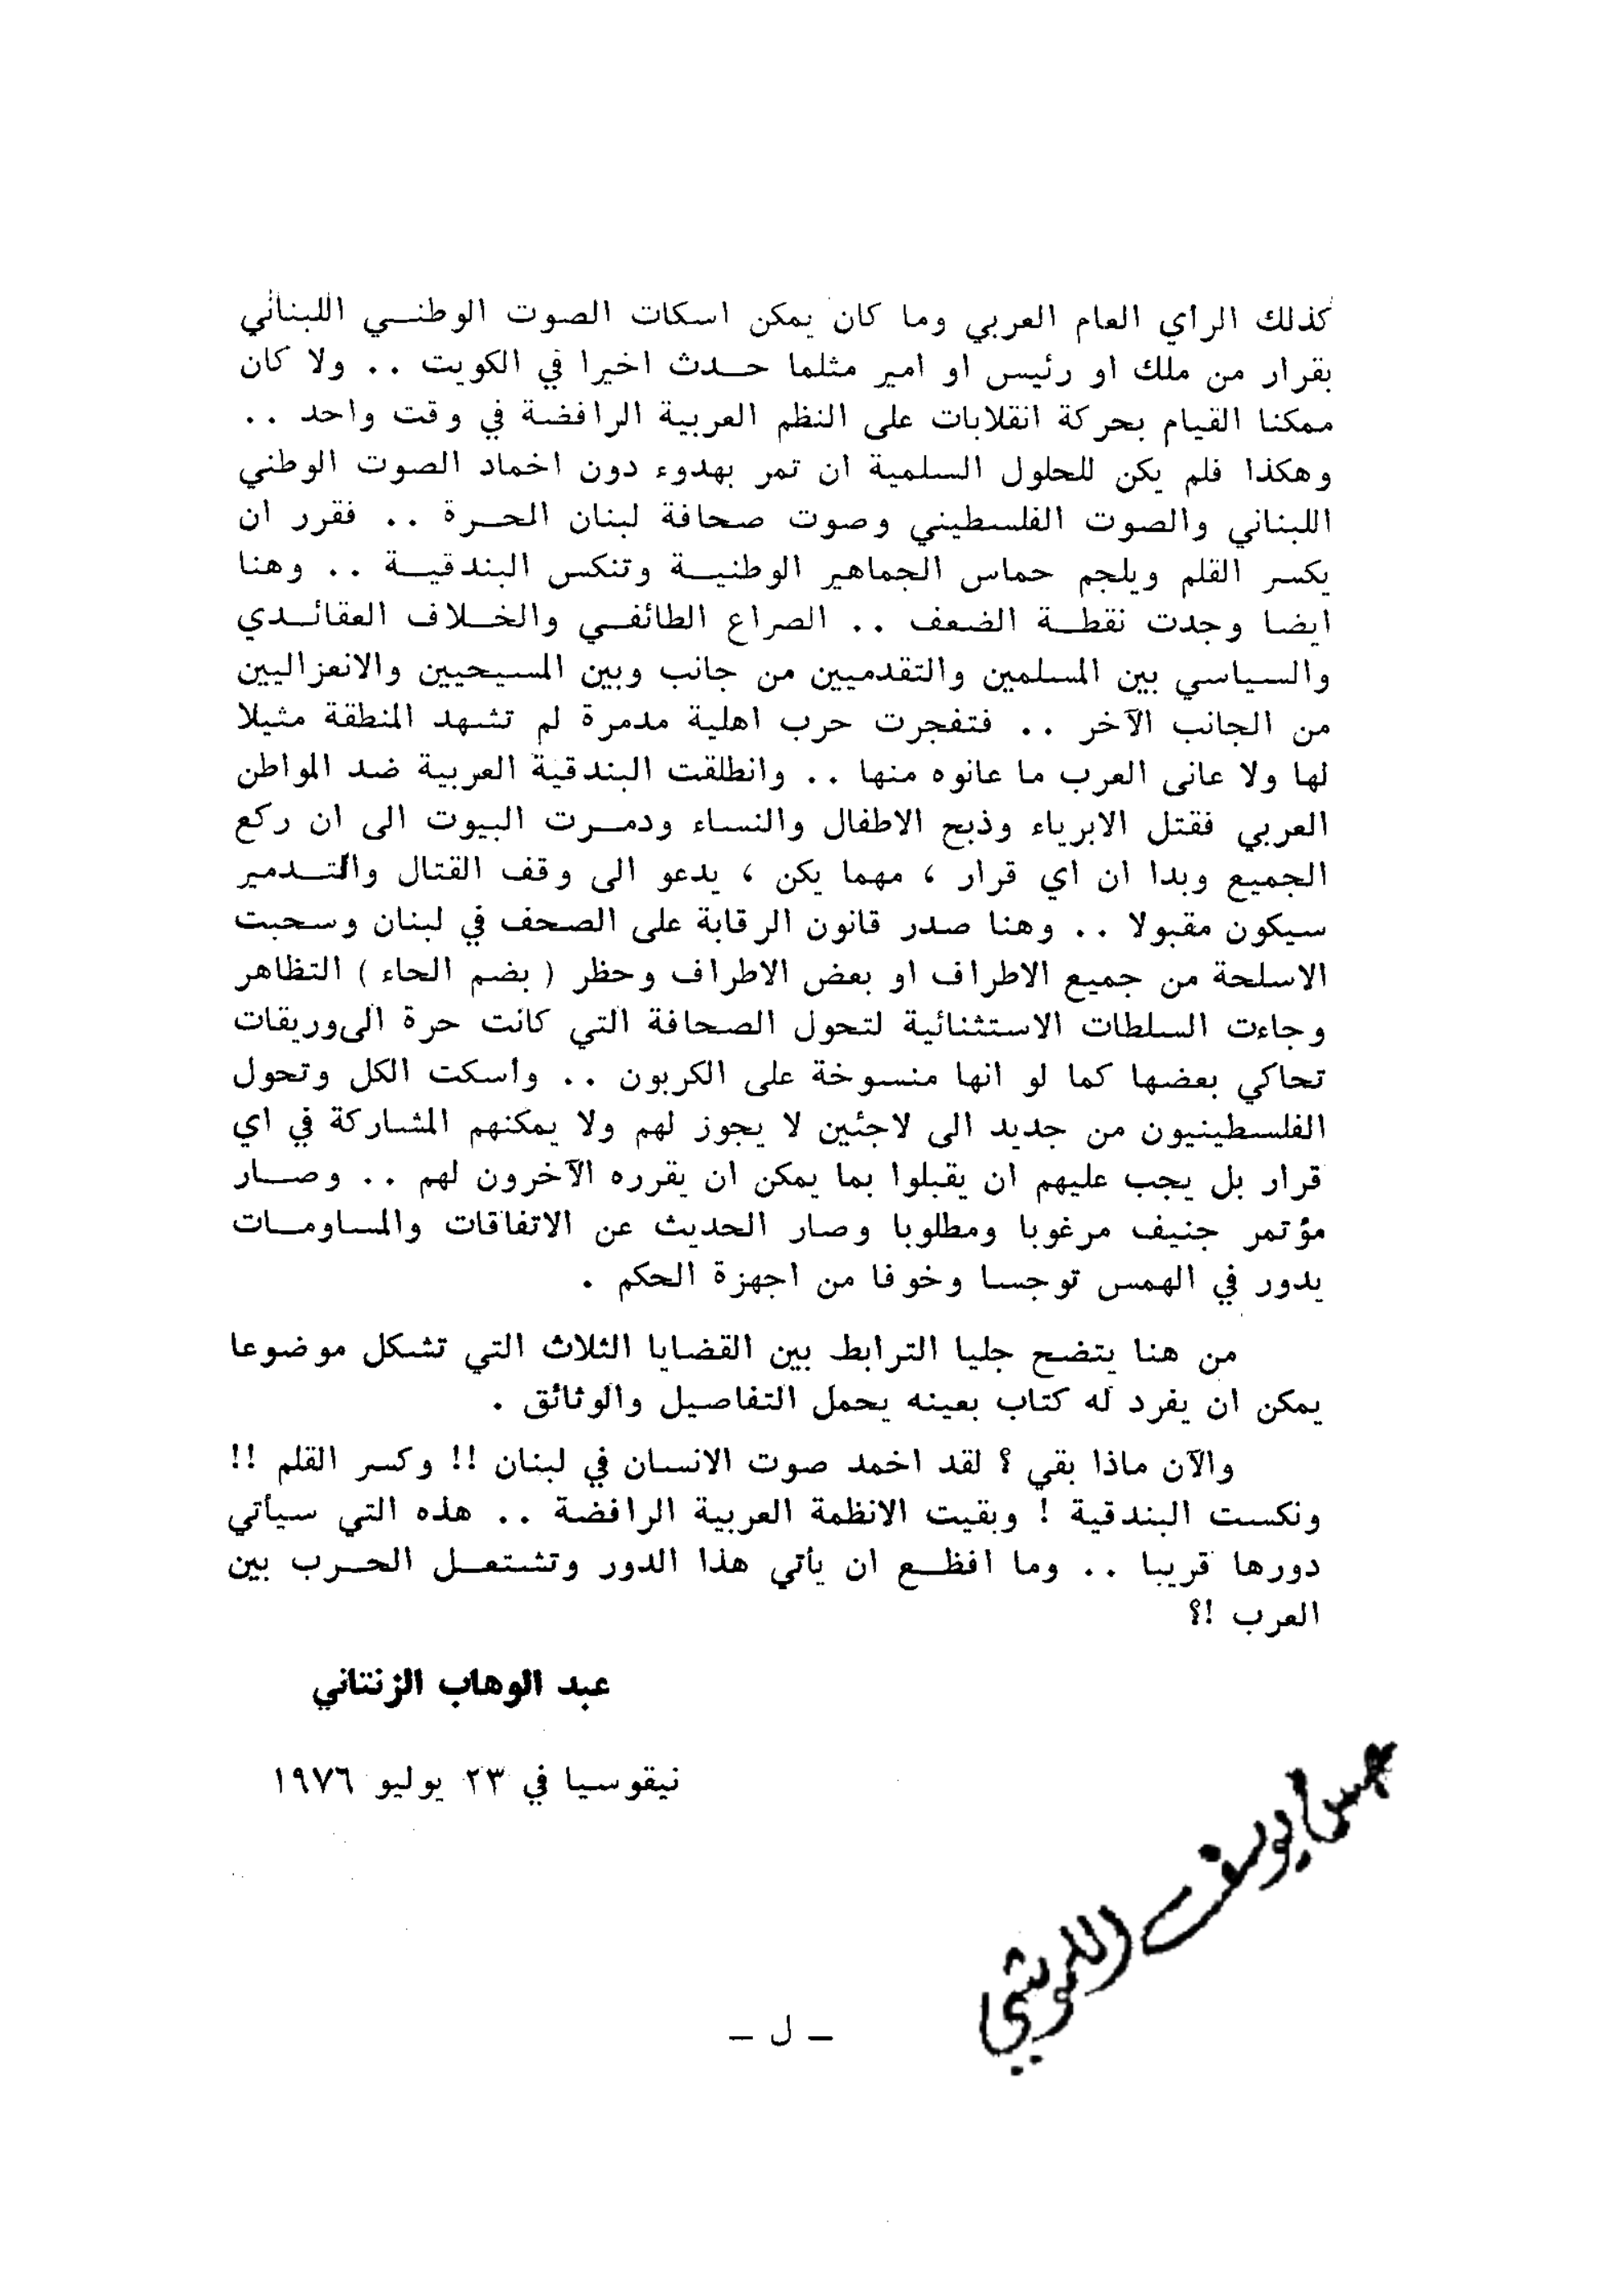 كذلك الرأي العام العربي وما كان يمكن اسكات الصوت الوطنـي اللبناني
بقرار من ملك او رئيس او امير مثلما حـدث اخيرا في الكويت .. ولا كان
ممكنا القيام بحركة انقلابات على النظم العربية الرافضة في وقت واحد ..
وهكذا فلم يكن للحلول السلمية ان تمر بهدوء دون اخماد الصوت الوطني
اللبناني والصوت الفلسطيني وصوت صحافة لبنان الحـرة .. فقرر ان
يكسر القلم ويلجم حماس الجماهير الوطنيـة وتنكس البندقيـة .. وهنا
ايضا وجدت نقطـة الضعف .. الصراع الطائفـي والخـلاف العقائـدي
والسياسي بين المسلمين والتقدميين من جانب وبين المسيحيين والانعزاليين
من الجانب الآخر .. فتفجرت حرب اهلية مدمرة لم تشهد المنطقة مثيلا
لها ولا عانى العرب ما عانوه منها .. وانطلقت البندقية العربية ضد المواطن
العربي فقتل الابرياء وذبح الاطفال والنساء ودمـرت البيوت الى ان ركع
الجميع وبدا ان اي قرار ، مهما يكن ، يدعو الى وقف القتال والتـدمير
سيكون مقبولا .. وهنا صدر قانون الرقابة على الصحف في لبنان وسحبت
الاسلحة من جميع الاطراف او بعض الاطراف وحظر ( بضم الحاء ) التظاهر
وجاءت السلطات الاستثنائية لتحول الصحافة التي كانت حرة الى وريقات
تحاكي بعضها كما لو انها منسوخة على الكربون .. وأسكت الكل وتحول
الفلسطينيون من جديد الى لاجئين لا يجوز لهم ولا يمكنهم المشاركة في اي
قرار بل يجب عليهم ان يقبلوا بما يمكن ان يقرره الآخرون لهم .. وصـار
مؤتمر جنيف مرغوبا ومطلوبا وصار الحديث عن الاتفاقات والمساومـات
يدور في الهمس توجسا وخوفا من اجهزة الحكم .
من هنا يتضح جليا الترابط بين القضايا الثلاث التي تشكل موضوعا
يمكن ان يفرد له كتاب بعينه يحمل التفاصيل والوثائق .
والآن ماذا بقي ؟ لقد اخمد صوت الانسان في لبنان !! وكسر القلم !!
ونكست البندقية ! وبقيت الانظمة العربية الرافضة .. هذه التي سيأتي
دورها قريبا .. وما افظـع ان يأتي هذا الدور وتشتعـل الحـرب بين
العرب !؟
عبد الوهاب الزنتاني
نيقوسيا في ٢٣ يوليو ١٩٧٦
يوسف
– ل –